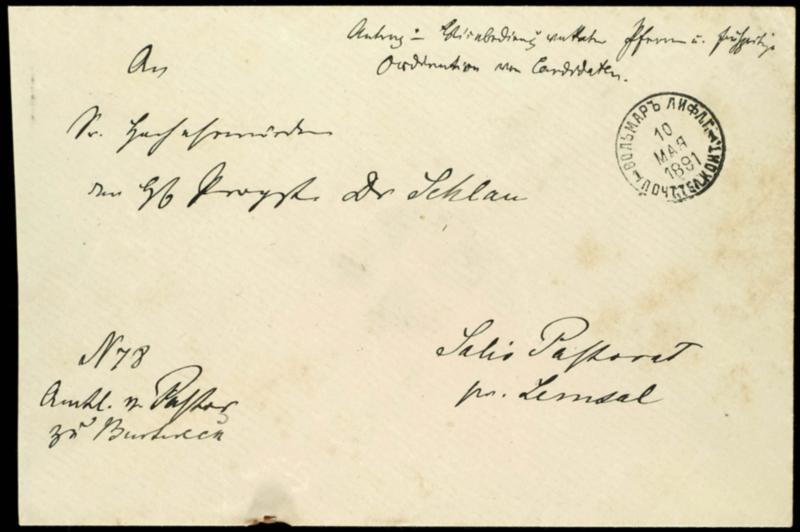 Antrag: Bedienung vakanter Pfarren u. frühzeitige
Ordination von Candidaten.
An
Sr. Hochehrwürden
den H. Propst Dr Schlau
ВОЛЬМАРЪ ЛИФЛ. Г.
10
МАЯ
1891
ПОЧТ. ТЕЛ. КОНТ.
Salis Pastorat
pr. Lemsal
N 78
Amtl. v. Pastor
zu Burtneck